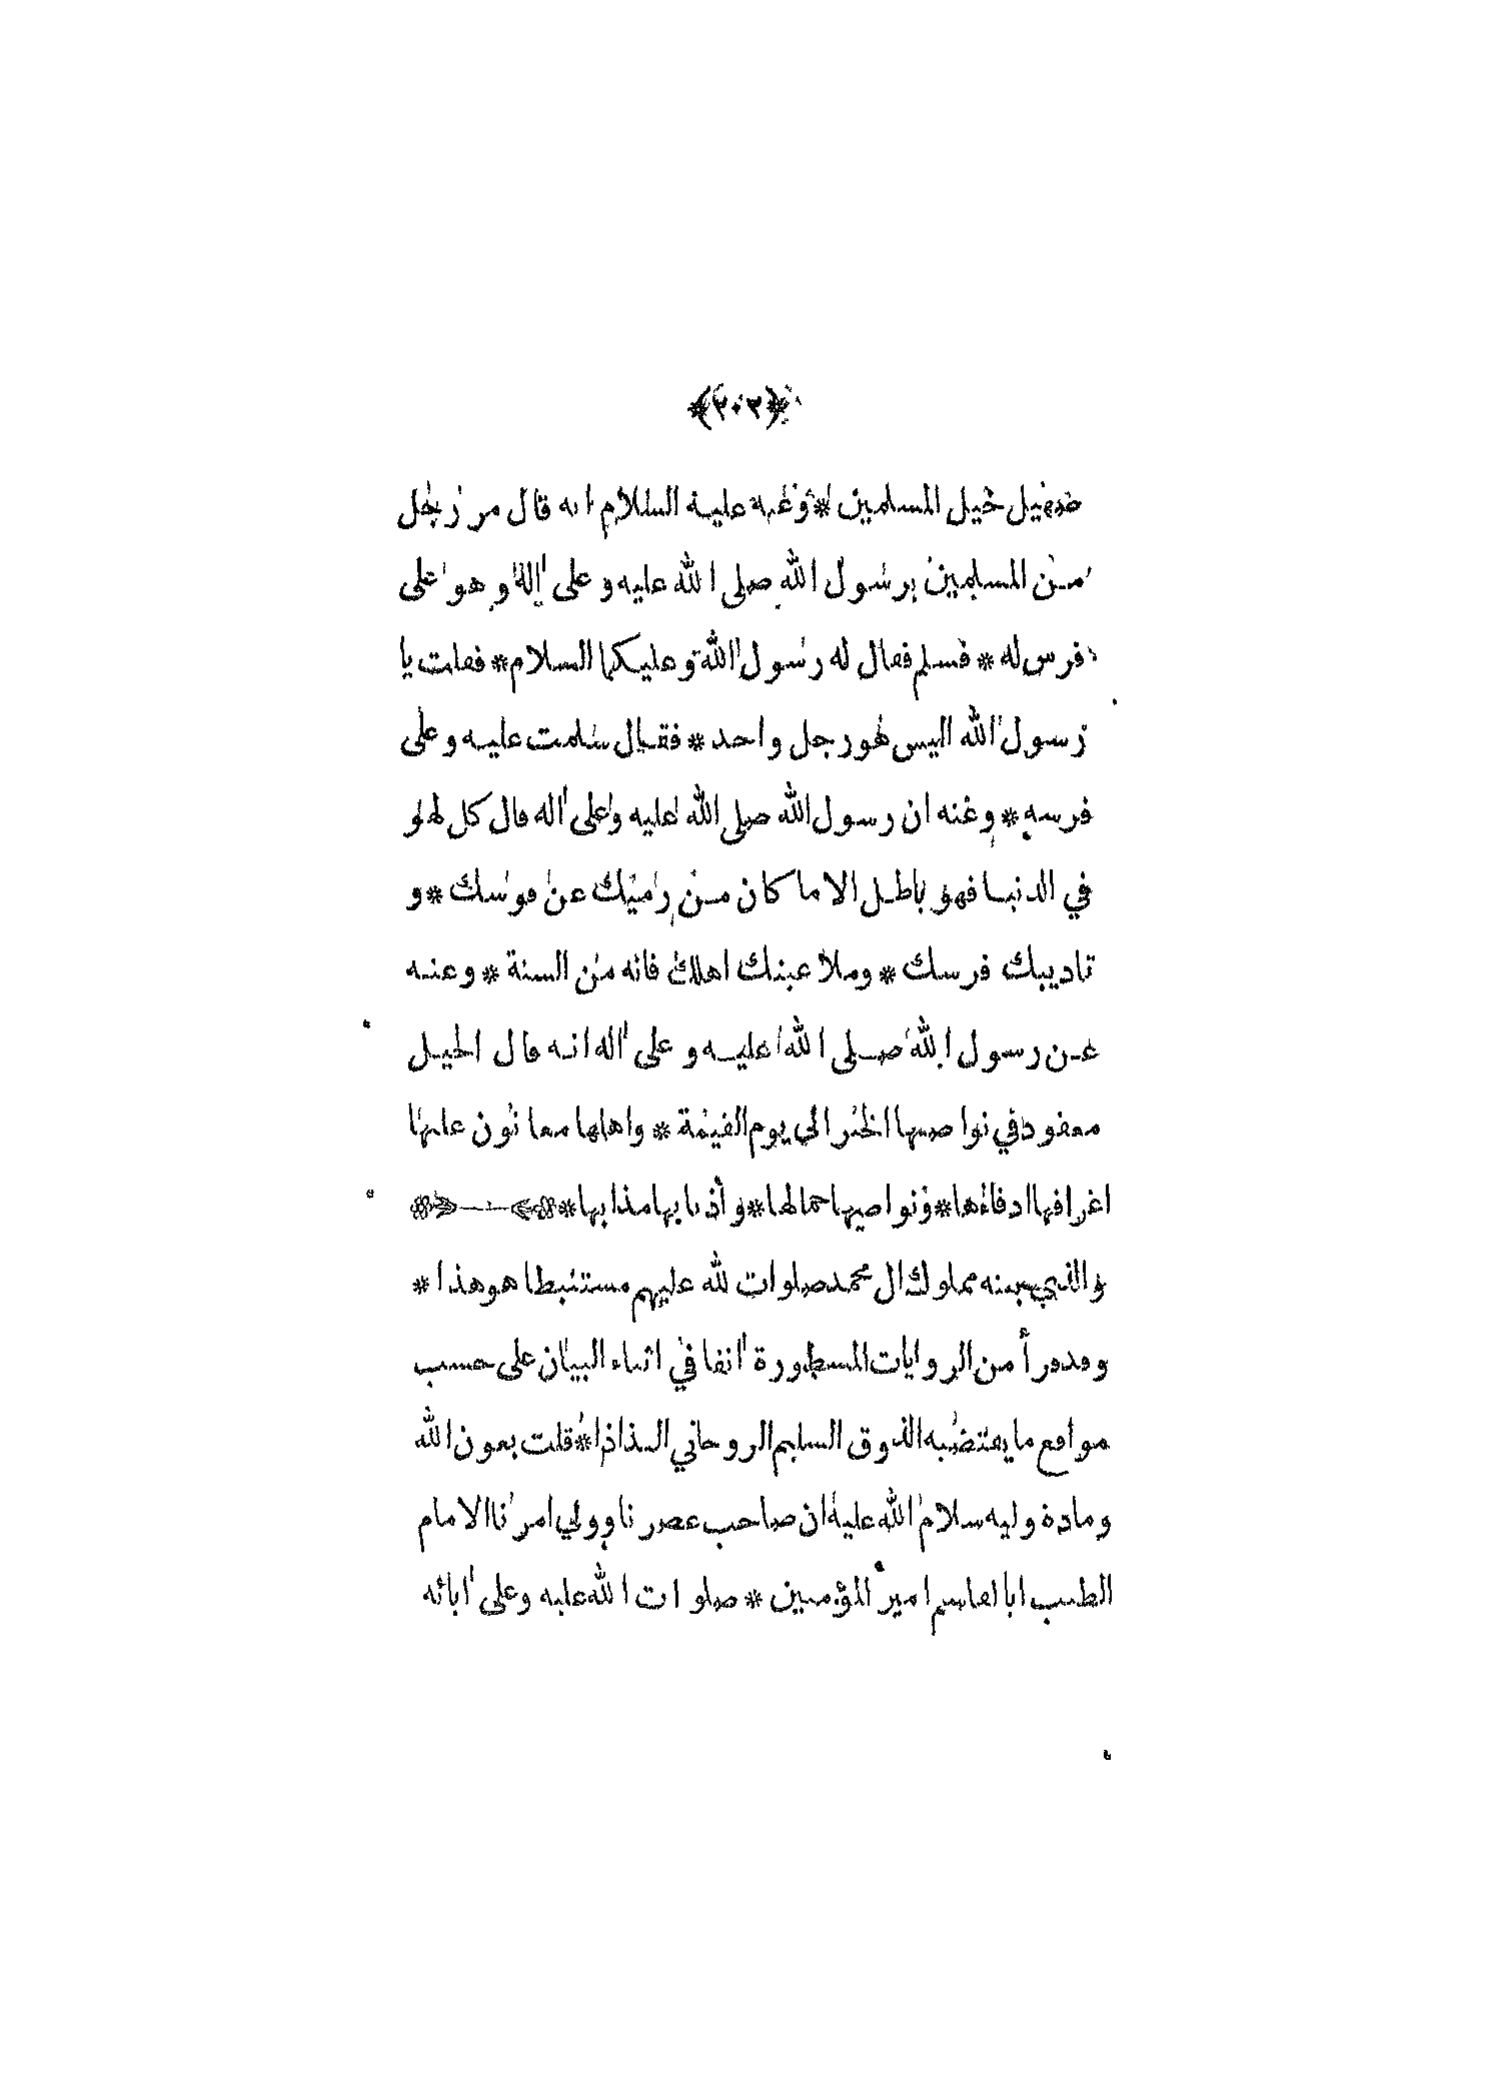 ﴿٢٠٢﴾
صهيل خيل المسلمين * وعنه عليه السلام انه قال مر رجل
من المسلمين برسول الله صلى الله عليه وعلى اله وهو على
فرس له * فسلم فقال له رسول الله وعليكما السلام * فقلت يا
رسول الله اليس هو رجل واحد * فقال سلمت عليه وعلى
فرسه * وعنه ان رسول الله صلى الله عليه وعلى اله قال كل لهو
في الدنيا فهو باطل الا ما كان من رميك عن قوسك * و
تاديبك فرسك * وملاعبتك اهلك فانه من السنة * وعنه
عن رسول الله صلى الله عليه وعلى اله انه قال الخيل
معقود في نواصيها الخير الى يوم القيمة * واهلها معانون عليها
اعرافها ادفاءها * ونواصيها جمالها * وأذنابها مذابها *
والذي مملوك ال محمد صلوات لله عليهم مستنبطا هو هذا *
من الروايات المسطورة انفا في اثناء البيان على حسب
مواقع ما يقتضيه الذوق السليم الروحاني * قلت بعون الله
ومادة وليه سلام الله عليه ان صاحب عصرنا وولي امرنا الامام
الطيب ابا القاسم امير المؤمنين * صلوات الله عليه وعلى ابائه